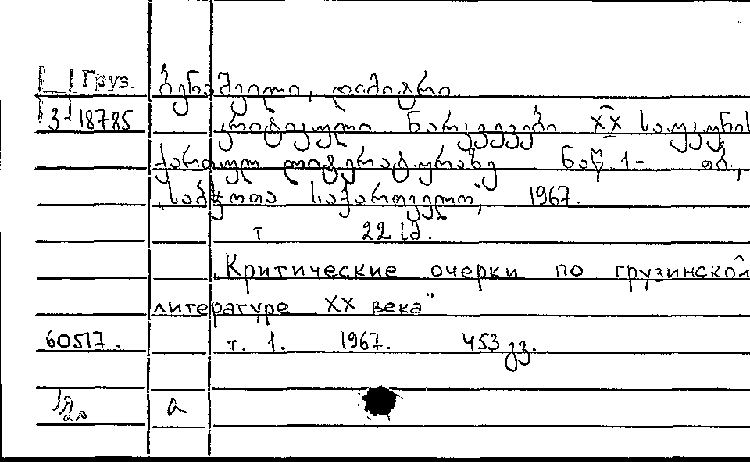 Груз. ბენაშვილი, დიმიტრი
3-18785 კრიტიკული ნარკვევები XX საუკუნის
ქართულ ლიტერატურაზე 1- თბ.,
„საბჭოთა საქართველო“, 1967.
т 22 სმ.
„Критические очерки по грузинской
литературе XX века“
60517. т. 1. 1967. 453 გვ.